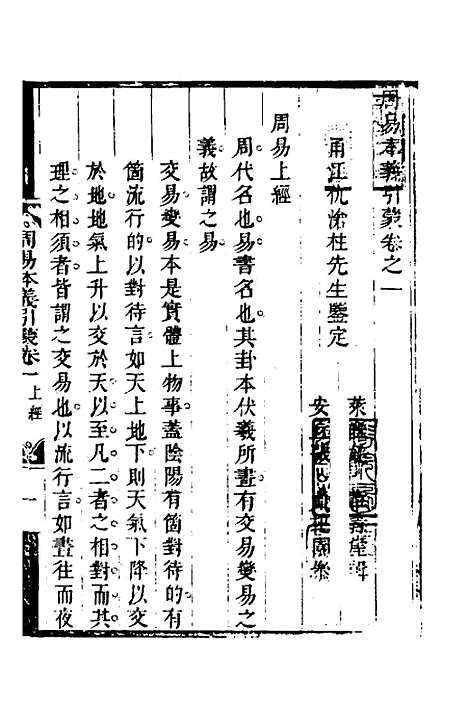 周易本義引蒙卷之一
甬江仇滄柱先生鑒定
萊
安
周易上經
周代名也易書名也其卦本伏羲所畫有交易變易之
義故謂之易
交易變易本是實體上物事蓋陰陽有箇對待的有
箇流行的以對待言如天上地下則天氣下降以交
於地地氣上升以交於天以至凡二者之相對而其
理之相須者皆謂之交易也以流行言如晝往而夜
周易本義引蒙卷一 上經 一